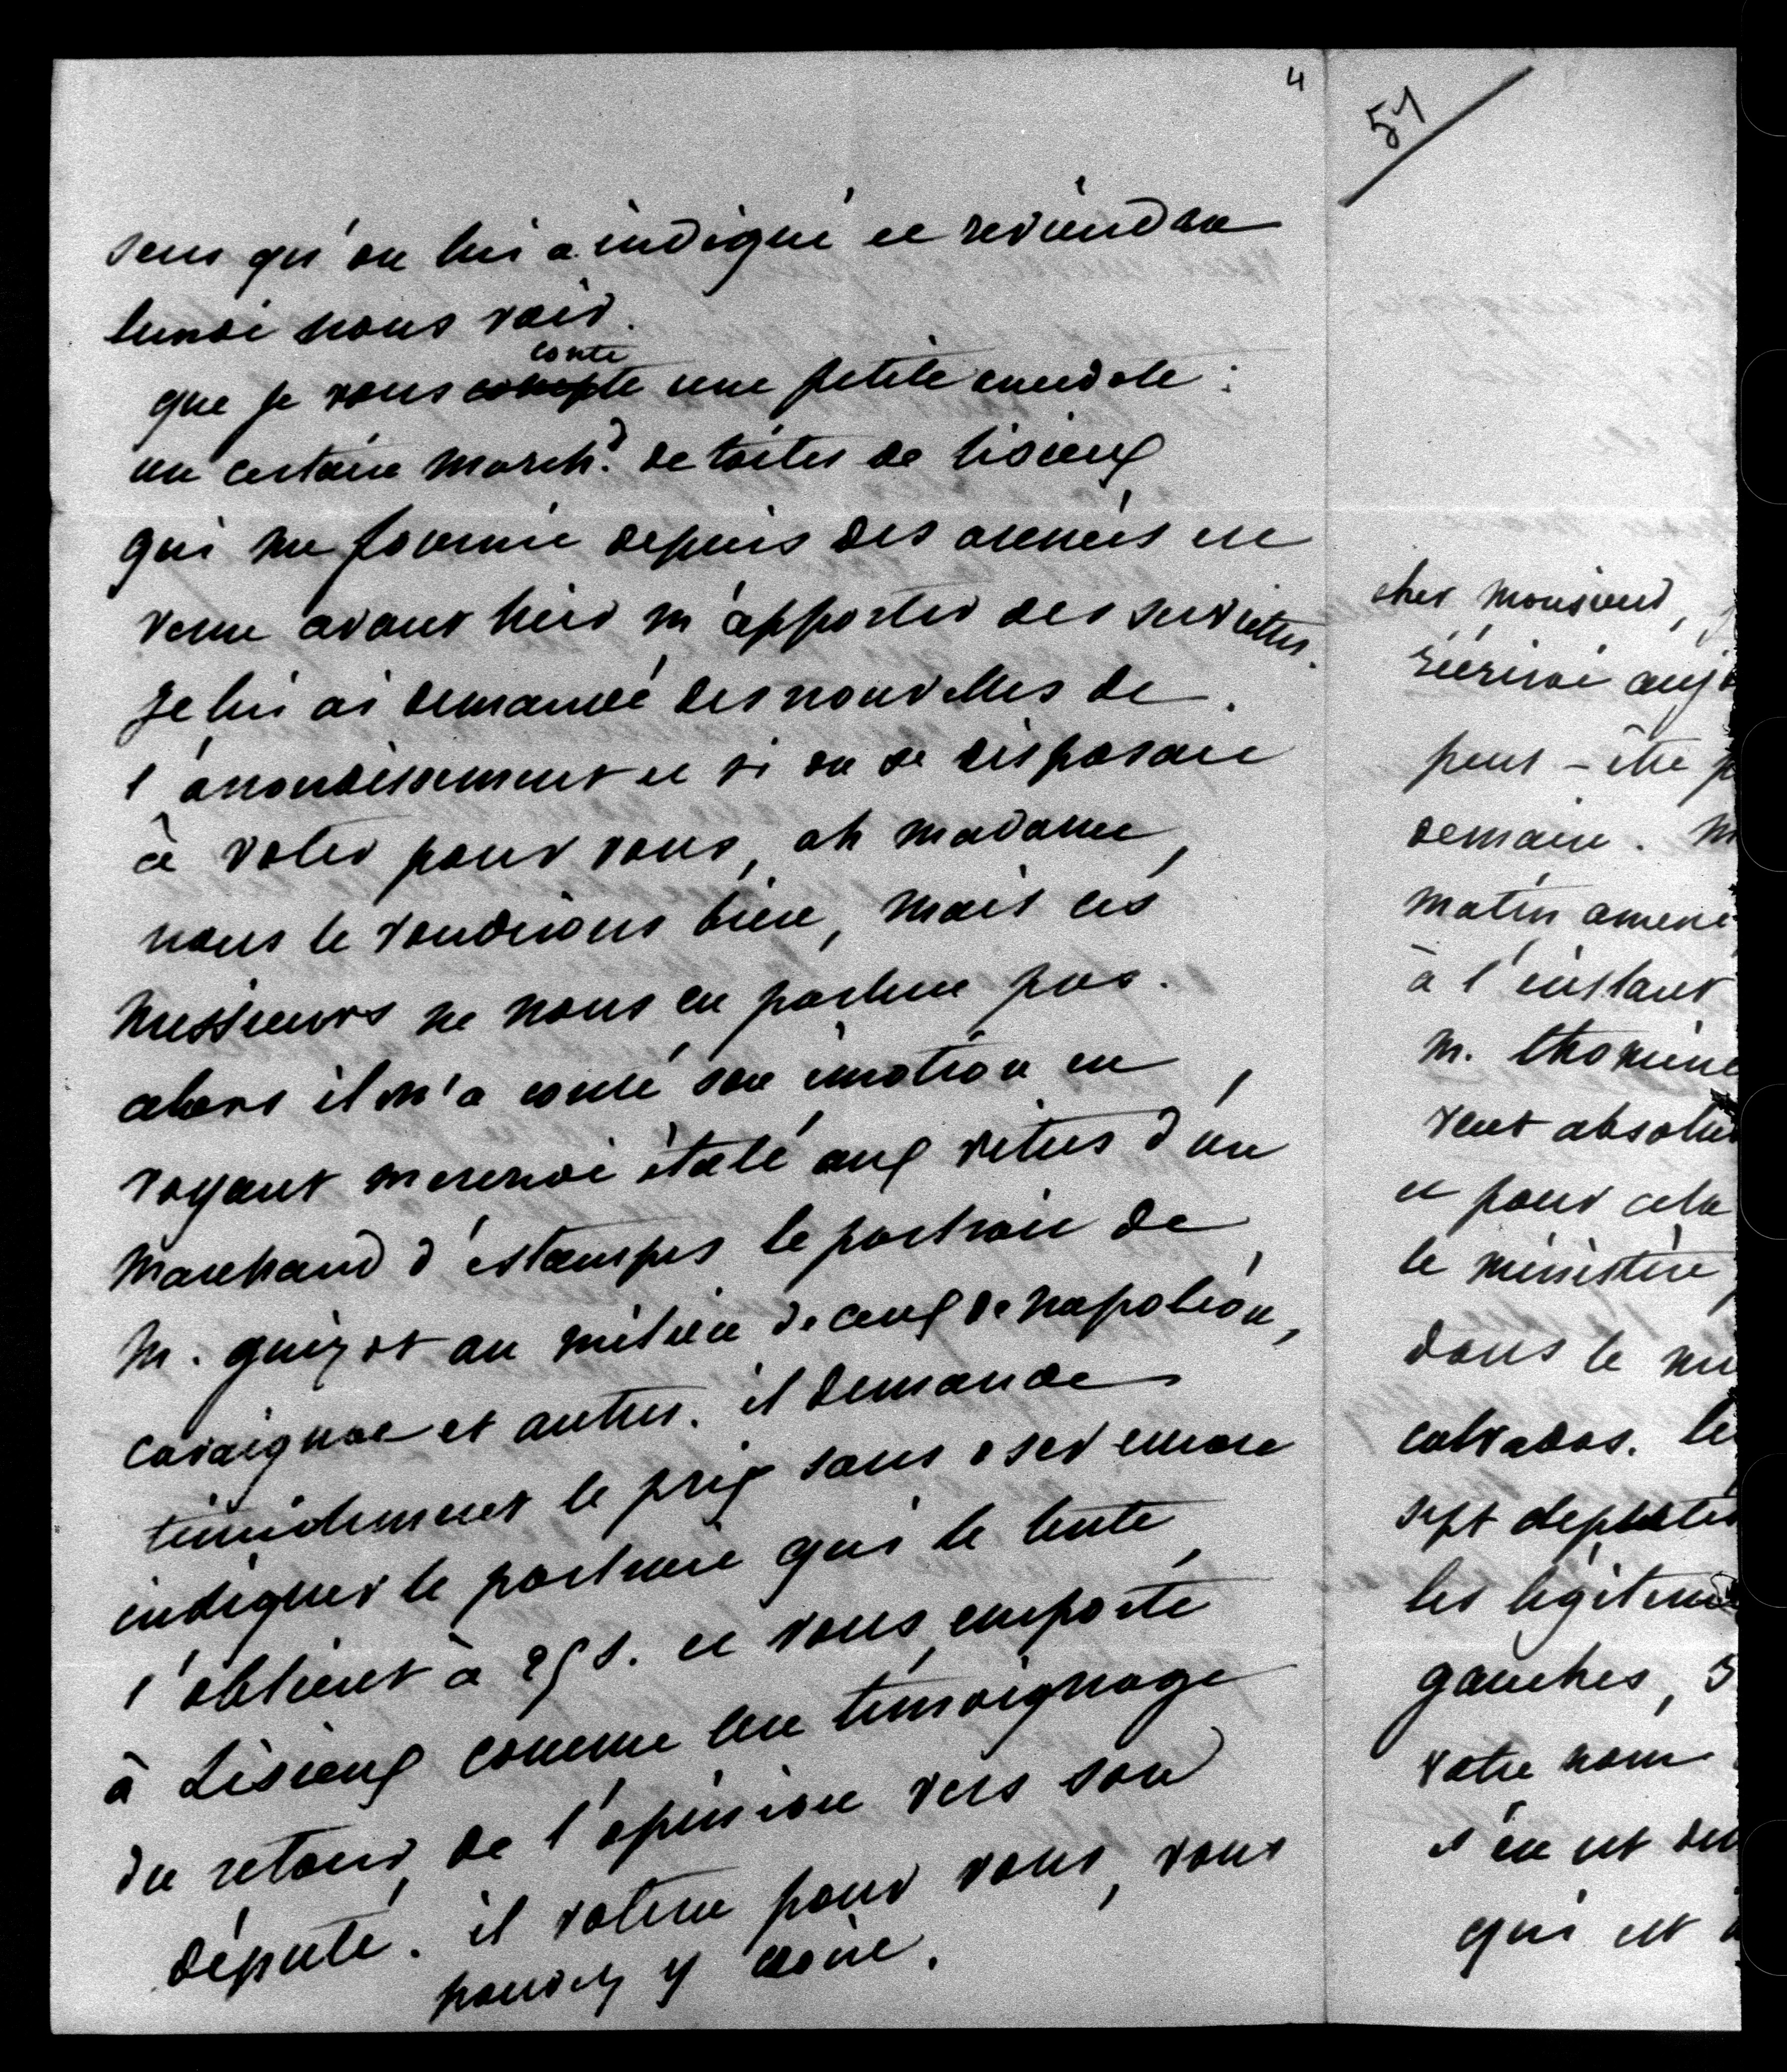 4
sens qu'on lui a indiqué et reviendra
lundi nous voir.
que je vous compte conte une petite anecdote :
un certain march.d de toiles de lisieux
qui me fournit depuis des années est
venu avant hier m'apporter des serviettes.
Je lui ai demandé des nouvelles de
l'arrondissement et si on se disposait
à voter pour vous, ah madame,
nous le voudrions bien, mais ces
messieurs ne nous en parlent pas.
alors il m'a conté son émotion en
voyant mercredi étalé aux vitres d'un
marchand d'estampes le portrait de
M. guizot au milieu de ceux de napoléon,
cavaignac et autres. il demande
timidement le prix sans oser encore
indiquer le portrait qui le tente,
l'obtient à 25 s. et vous emporte
à Lisieux comme un témoignage
du retour de l'opinion vers son
député. il votera pour vous, vous
pouvez y croire.
51
cher monsieur, j
récrirai auj
peut-être p
demain. M
matin amené
à l'instant
M. thomine
veut absolu
et pour cela
le ministère
dans le
calvados. le
sept députés
les légitim
gauches, 3
votre nom
s'en est
qui est